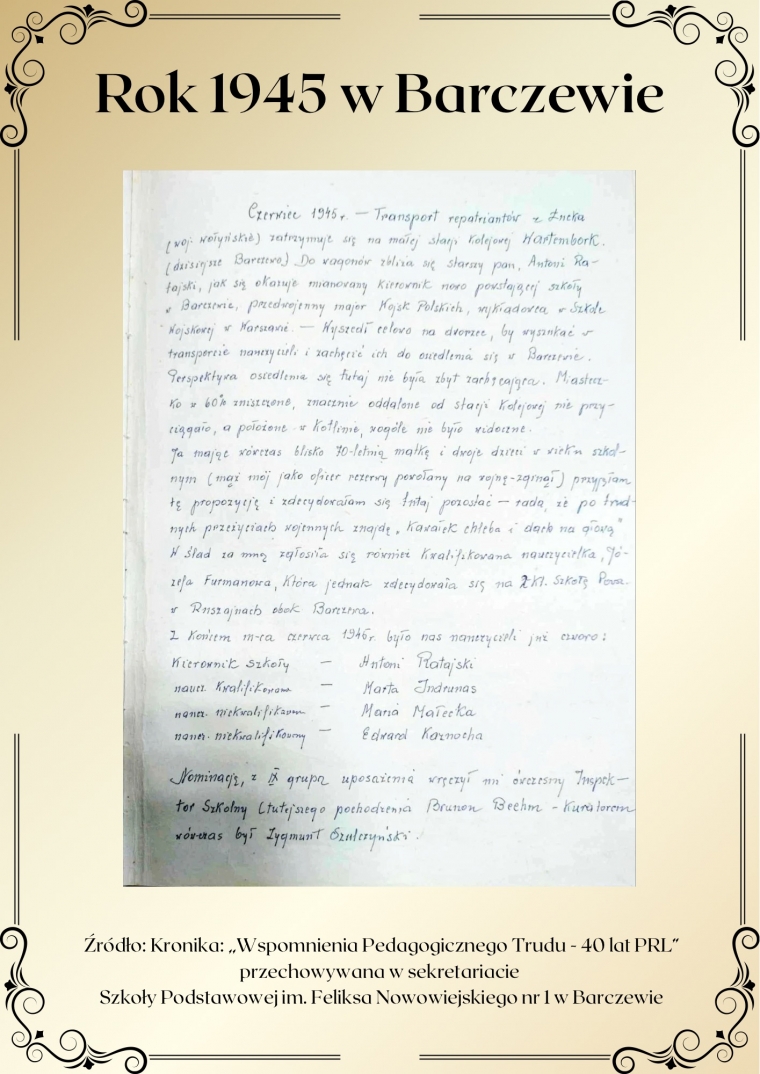 Rok 1945 w Barczewie
Czerwiec 1945 r. — Transport repatriantów z Łucka
(woj. wołyńskie) zatrzymuje się na małej stacji kolejowej Wartembork.
(dzisiejsze Barczewo) Do wagonów zbliża się starszy pan, Antoni Ra-
tajski, jak się okazuje mianowany kierownik nowo powstającej szkoły
w Barczewie, przedwojenny major Wojsk Polskich, wykładowca w Szkole
Wojskowej w Warszawie. — Wyszedł celowo na dworzec, by wyszukać w
transporcie nauczycieli i zachęcić ich do osiedlenia się w Barczewie.
Perspektywa osiedlenia się tutaj nie była zbyt zachęcająca. Miastecz-
ko w 60% zniszczone, znacznie oddalone od stacji kolejowej nie przy-
ciągało, a położone w kotlinie, wogóle nie było widoczne.
Ja mając wówczas blisko 70-letnią matkę i dwoje dzieci w wieku szkol-
nym (mąż mój jako oficer rezerwy powołany na wojnę - zginął) przyjęłam
tę propozycję i zdecydowałam się tutaj pozostać — rada, że po trud-
nych przeżyciach wojennych znajdę „kawałek chleba i dach na głową"
W ślad za mną zgłosiła się również kwalifikowana nauczycielka, Jó-
zefa Furmanowa, która jednak zdecydowała się na 2 kl. Szkołę Pow.
w Ruszajnach obok Barczewa.
Z końcem m-ca czerwca 1945r. było nas nauczycieli już czworo:
Kierownik szkoły — Antoni Ratajski
naucz. kwalifikowana — Marta Indrunas
naucz. niekwalifikowan — Maria Małecka
naucz. niekwalifikowany — Edward Karnocha
Nominację, z IX grupą uposażenia wręczył mi ówczesny Inspek-
tor Szkolny (tutejszego pochodzenia Brunon Beehm - Kuratorem
wówczas był Zygmunt Szulczyński.
Źródło: Kronika: „Wspomnienia Pedagogicznego Trudu - 40 lat PRL"
przechowywana w sekretariacie
Szkoły Podstawowej im. Feliksa Nowowiejskiego nr 1 w Barczewie